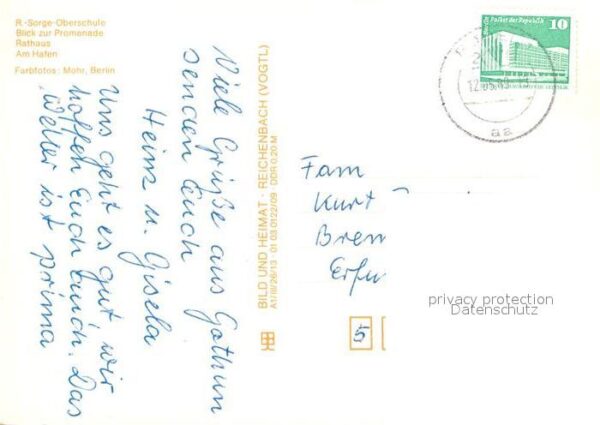 R.-Sorge-Oberschule
Blick zur Promenade
Rathaus
Am Hafen
Farbfotos: Mohr, Berlin
Viele Grüße aus
senden Euch
Heinz u. Gisela
Uns geht es gut, wir
hoffen Euch auch. Das
Wetter ist prima.
BILD UND HEIMAT · REICHENBACH (VOGTL)
A1/III/26/13 · 01 03 0122/09 · DDR 0,20 M
Palast der Republik
10
aa
Fam
Kurt
Brem
Erfu
5
privacy protection
Datenschutz